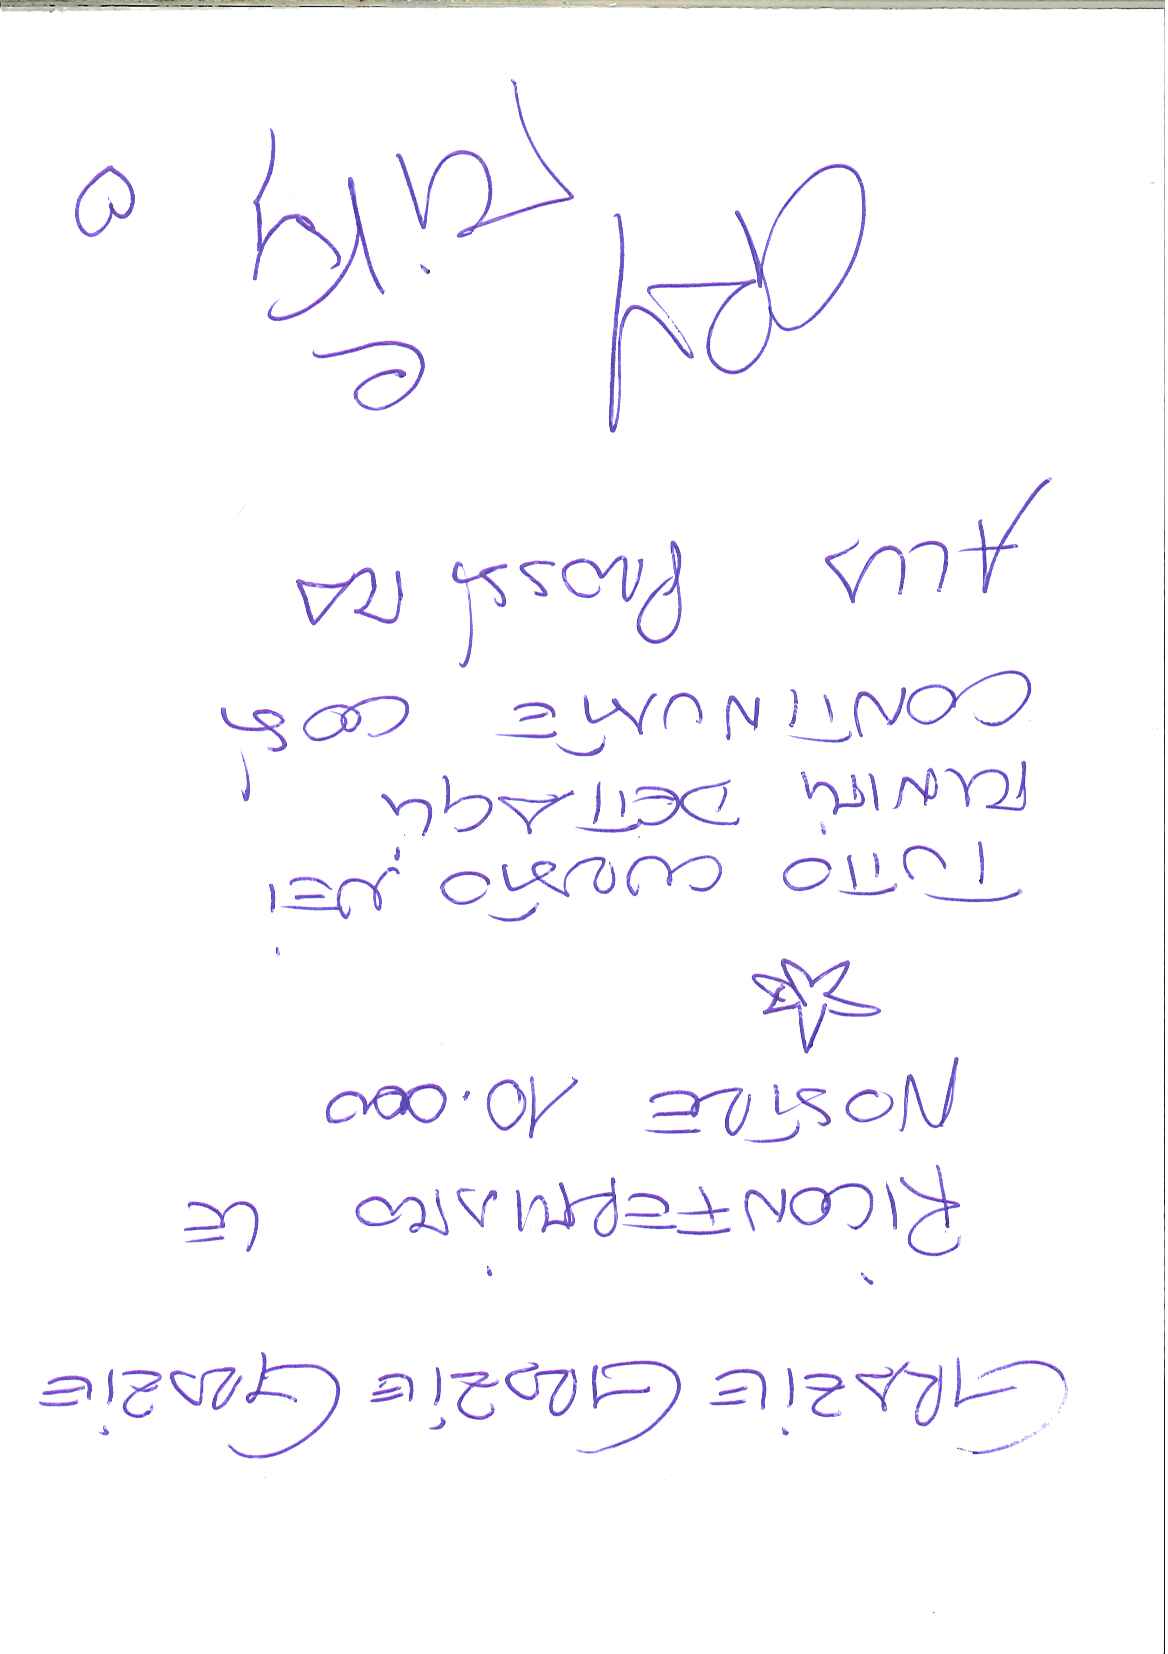 GRAZIE GRAZIE GRAZIE
RICONFERMIAMO LE
NOSTRE 10.000
TUTTO CURATO NEI
MINIMI DETTAGLI
CONTINUATE COSÌ
ALLA PROSSIMA
e